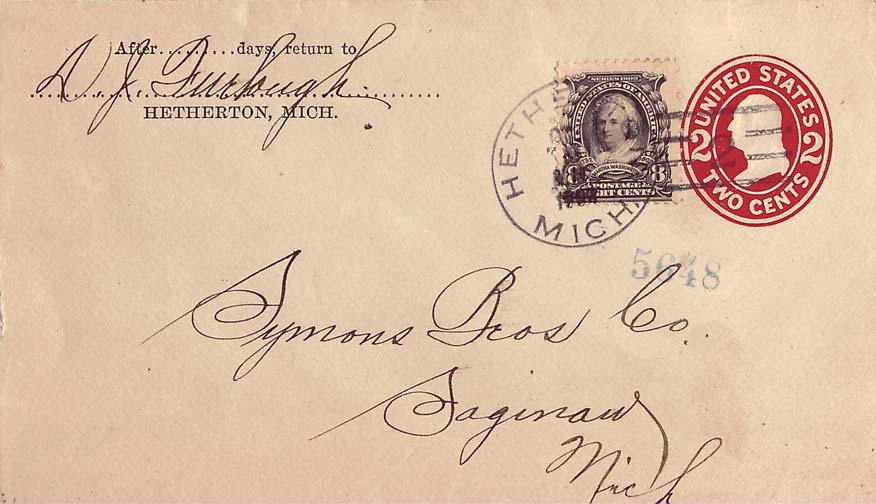 After..........days, return to
HETHERTON, MICH.
HETH
MICH
SERIES 1902
UNITED STATES OF AMERICA
MARTHA WASHINGTON
8 8
POSTAGE
EIGHT CENTS
UNITED STATES
2 2
TWO CENTS
5648
Symons Bros Co.
Saginaw
Mich